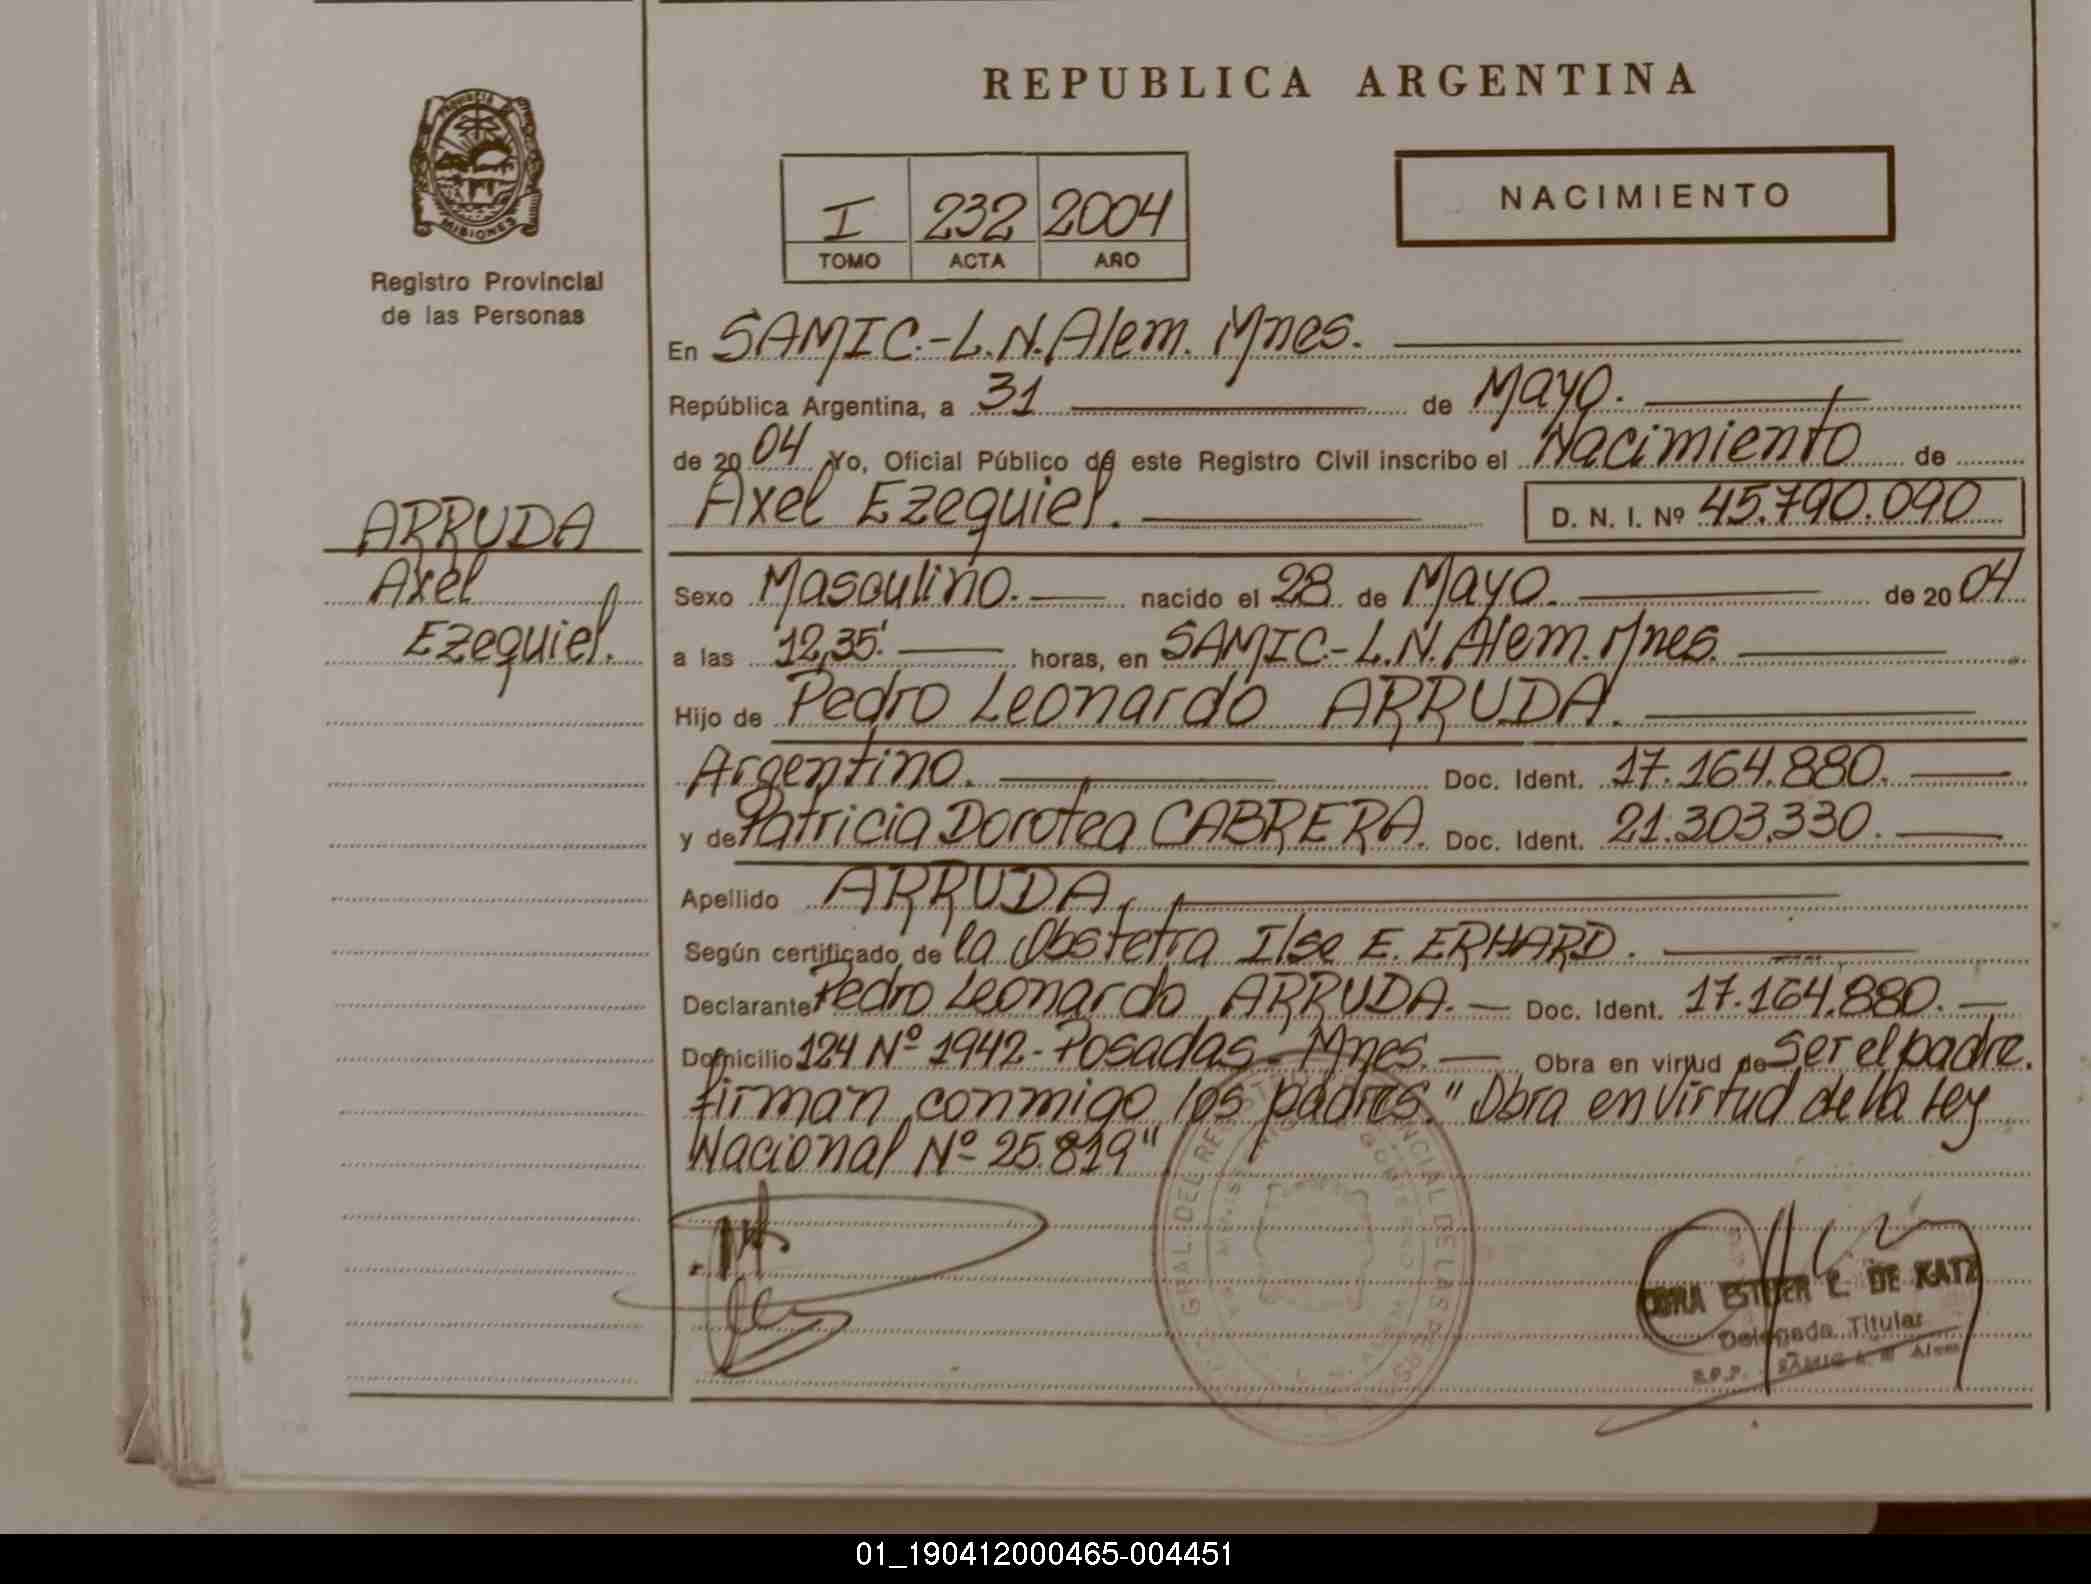 REPUBLICA ARGENTINA
PROVINCIA
MISIONES
Registro Provincial
de las Personas
I 232 2004
TOMO ACTA AÑO
NACIMIENTO
En SAMIC.-L.N.Alem. Mnes.
República Argentina, a 31 de Mayo.
de 2004 Yo, Oficial Público de este Registro Civil inscribo el Nacimiento de
Axel Ezequiel. D. N. I. Nº 45.790.090
ARRUDA
Axel
Ezequiel.
Sexo Masculino. nacido el 28 de Mayo. de 2004
a las 12,35. horas, en SAMIC.-L.N.Alem.Mnes.
Hijo de Pedro Leonardo ARRUDA.
Argentino. Doc. Ident. 17.164.880.
y de Patricia Dorotea CABRERA. Doc. Ident. 21.303.330.
Apellido ARRUDA.
Según certificado de la Obstetra Ilse E. ERHARD.
Declarante Pedro Leonardo ARRUDA. Doc. Ident. 17.164.880.
Domicilio 124 Nº 1942-Posadas-Mnes. Obra en virtud de Ser el padre.
firman conmigo los padres. "Obra en virtud de la Ley
Nacional Nº 25.819"
ESTHER R. DE KATZ
Delegada Titular
SAMIC L. N. Alem
01_190412000465-004451